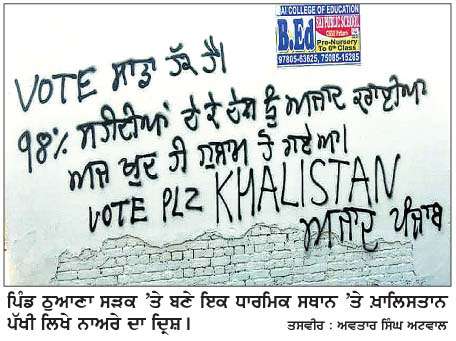 SAI COLLEGE OF EDUCATION
B.Ed
SAI PUBLIC SCHOOL
Pre-Nursery
To 6th Class
97805-63625, 75085-15285
VOTE ਸਾਡਾ ਹੱਕ ਹੈ।
98% ਸ਼ਹੀਦੀਆਂ ਦੇ ਕੇ ਦੇਸ਼ ਨੂੰ ਅਜਾਦ ਕਰਾਈਆ
ਅਜ ਖੁਦ ਹੀ ਗੁਲਾਮ ਹੋ ਗਏ ਆ।
VOTE PLZ KHALISTAN
ਅਜਾਦ ਪੰਜਾਬ
ਪਿੰਡ ਠੁਆਣਾ ਸੜਕ 'ਤੇ ਬਣੇ ਇਕ ਧਾਰਮਿਕ ਸਥਾਨ 'ਤੇ ਖ਼ਾਲਿਸਤਾਨ
ਪੱਖੀ ਲਿਖੇ ਨਾਅਰੇ ਦਾ ਦ੍ਰਿਸ਼।
ਤਸਵੀਰ : ਅਵਤਾਰ ਸਿੰਘ ਅਟਵਾਲ